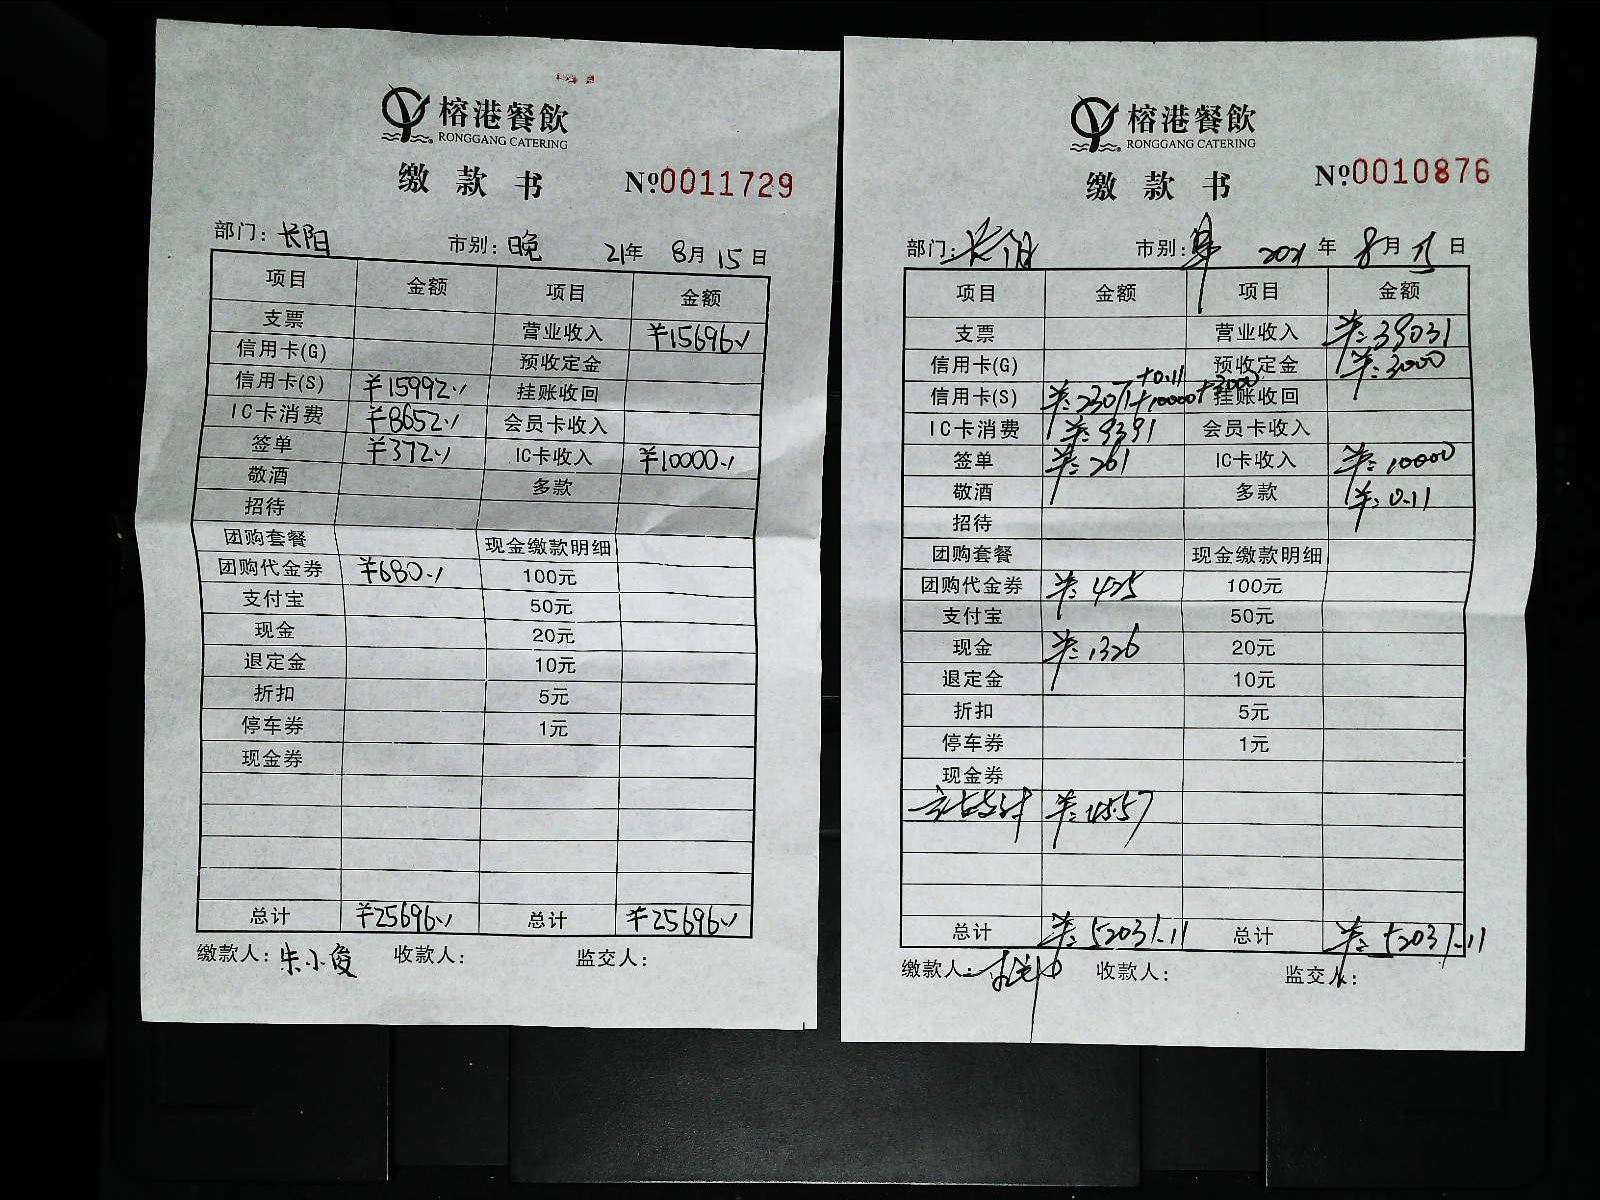 榕港餐飲
RONGGANG CATERING
缴款书 №0011729
部门：长阳 市别：晚 21年 8月 15日
项目 金额 项目 金额
支票 营业收入 ¥15696.√
信用卡(G) 预收定金
信用卡(S) ¥15992.√ 挂账收回
IC卡消费 ¥8652.√ 会员卡收入
签单 ¥372.√ IC卡收入 ¥10000.√
敬酒 多款
招待
团购套餐 现金缴款明细
团购代金券 ¥680.√ 100元
支付宝 50元
现金 20元
退定金 10元
折扣 5元
停车券 1元
现金券
总计 ¥25696.√ 总计 ¥25696.√
缴款人：朱小俊 收款人： 监交人：
榕港餐飲
RONGGANG CATERING
缴款书 №0010876
部门：长阳 市别： 2021年 8月 15日
项目 金额 项目 金额
支票 营业收入 ¥:39031
信用卡(G) 预收定金 ¥:3000
信用卡(S) ¥:23071+10000+3000+0.11 挂账收回
IC卡消费 ¥:9391 会员卡收入
签单 ¥:261 IC卡收入 ¥:10000
敬酒 多款 ¥:0.11
招待
团购套餐 现金缴款明细
团购代金券 ¥:425 100元
支付宝 50元
现金 ¥:1326 20元
退定金 10元
折扣 5元
停车券 1元
现金券
¥:4557
总计 ¥:52031.11 总计 ¥:52031.11
缴款人： 收款人： 监交人：